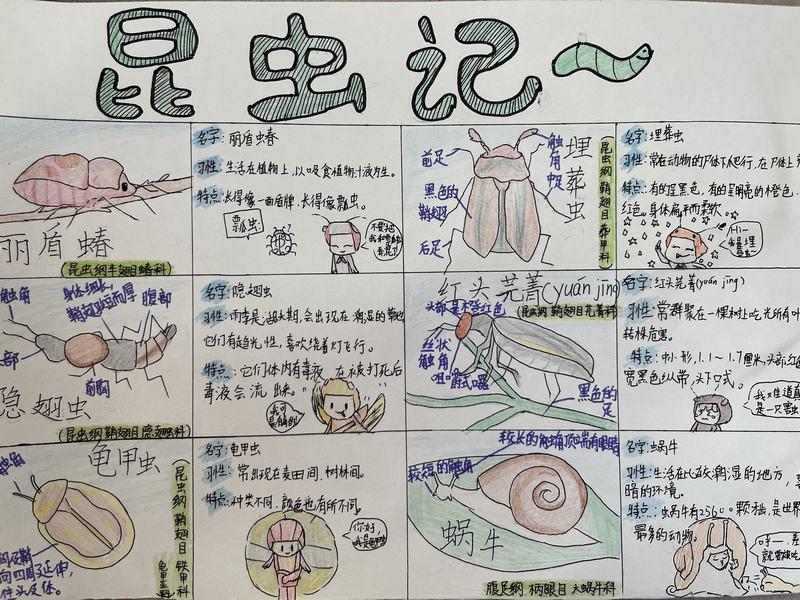 昆虫记~
丽盾蝽
昆虫纲半翅目蝽科
名字:丽盾虫春
习性:生活在植物上,以吸食植物汁液为生。
特点:长得像一面盾牌,长得像瓢虫。
瓢虫:
前足
黑色的
鞘翅
后足
触角
中足
埋葬虫
昆虫纲 鞘翅目 葬甲科
名字:埋葬虫
习性:常在动物的尸体下爬行,在尸体上
特点:有的呈黑色,有的呈明亮的橙色,
红色,身体扁平而柔软。
Hi~
我是埋
触角
身体细长,
鞘翅短而厚
腹部
部
前胸
隐翅虫
昆虫纲 鞘翅目 隐翅虫科
名字:隐翅虫
习性:雨季是活跃期,会出现在潮湿的草地
它们有趋光性,喜欢绕着灯飞行。
特点:它们体内有毒液,在被打死后
毒液会流出来。
我可
红头芫菁(yuán jīng)
昆虫纲 鞘翅目 芫菁科
头部是橙红色
丝状
触角
咀嚼式口器
黑色的
足
名字:红头芫菁(yuán jīng)
习性:常群聚在一棵树上吃光所有叶
转株危害。
特点:中小形,1.1~1.7厘米,头部红
宽黑色纵带,头下口式。
我难道真
是一只害虫
触角
龟甲虫
向四周延伸,
昆虫纲 鞘翅目 铁甲科
名字:龟甲虫
习性:常出现在麦田间、树林间。
特点:种类不同,颜色也有所不同。
你好,
我是龟甲
较短的触角
较长的触角顶端有眼睛
蜗牛
腹足纲 柄眼目 大蜗牛科
名字:蜗牛
习性:生活在比较潮湿的地方,
暗的环境。
特点:蜗牛有25600颗牙齿,是世界
最多的动物。